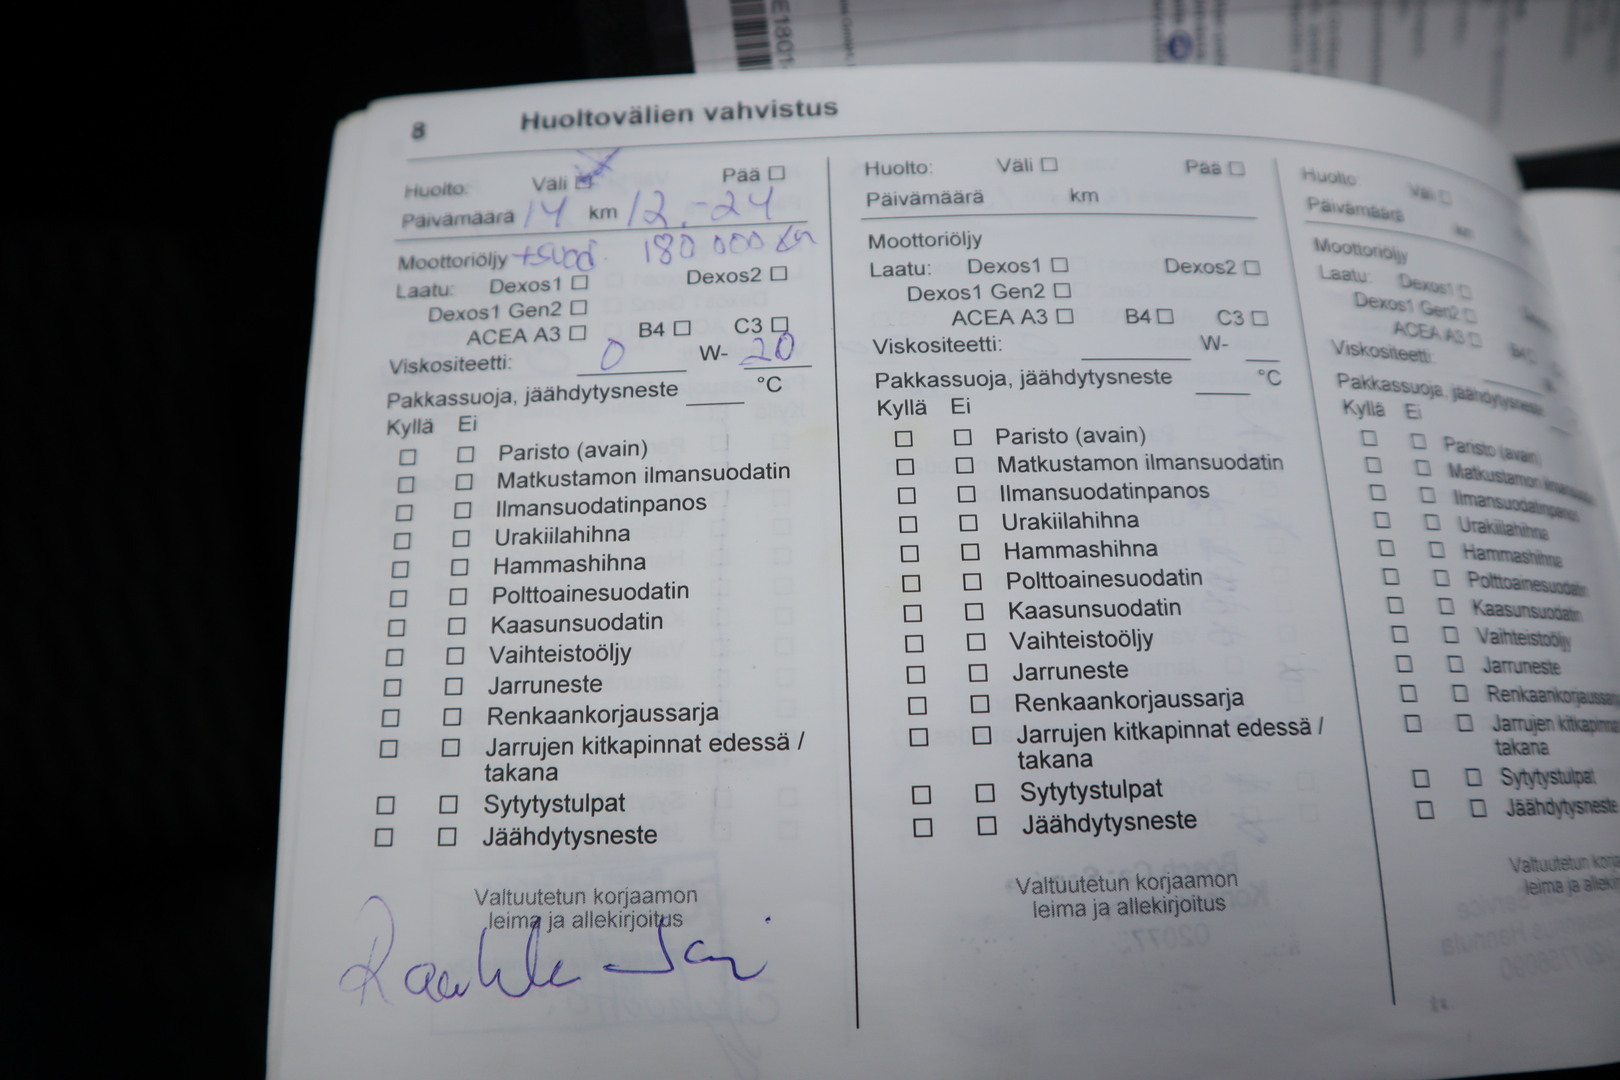 E1801-
8 Huoltovälien vahvistus
Huolto: Väli ☒ Pää ☐
Päivämäärä 14 km 12.-24
Moottoriöljy +suod. 180 000 km
Laatu: Dexos1 ☐ Dexos2 ☐
Dexos1 Gen2 ☐
ACEA A3 ☐ B4 ☐ C3 ☐
Viskositeetti: 0 W- 20
Pakkassuoja, jäähdytysneste ____ °C
Kyllä Ei
☐ ☐ Paristo (avain)
☐ ☐ Matkustamon ilmansuodatin
☐ ☐ Ilmansuodatinpanos
☐ ☐ Urakiilahihna
☐ ☐ Hammashihna
☐ ☐ Polttoainesuodatin
☐ ☐ Kaasunsuodatin
☐ ☐ Vaihteistoöljy
☐ ☐ Jarruneste
☐ ☐ Renkaankorjaussarja
☐ ☐ Jarrujen kitkapinnat edessä /
takana
☐ ☐ Sytytystulpat
☐ ☐ Jäähdytysneste
Valtuutetun korjaamon
leima ja allekirjoitus
Huolto: Väli ☐ Pää ☐
Päivämäärä km
Moottoriöljy
Laatu: Dexos1 ☐ Dexos2 ☐
Dexos1 Gen2 ☐
ACEA A3 ☐ B4 ☐ C3 ☐
Viskositeetti: ____ W- ____
Pakkassuoja, jäähdytysneste ____ °C
Kyllä Ei
☐ ☐ Paristo (avain)
☐ ☐ Matkustamon ilmansuodatin
☐ ☐ Ilmansuodatinpanos
☐ ☐ Urakiilahihna
☐ ☐ Hammashihna
☐ ☐ Polttoainesuodatin
☐ ☐ Kaasunsuodatin
☐ ☐ Vaihteistoöljy
☐ ☐ Jarruneste
☐ ☐ Renkaankorjaussarja
☐ ☐ Jarrujen kitkapinnat edessä /
takana
☐ ☐ Sytytystulpat
☐ ☐ Jäähdytysneste
Valtuutetun korjaamon
leima ja allekirjoitus
Huolto Väli ☐
Päivämäärä km
Moottoriöljy
Laatu: Dexos1 ☐
Dexos1 Gen2 ☐
ACEA A3 ☐ B4
Viskositeetti:
Pakkassuoja, jäähdytysneste
Kyllä Ei
☐ ☐ Paristo (avain)
☐ ☐ Matkustamon
☐ ☐ Ilmansuodatinpanos
☐ ☐ Urakiilahihna
☐ ☐ Hammashihna
☐ ☐ Polttoainesuodatin
☐ ☐ Kaasunsuodatin
☐ ☐ Vaihteistoöljy
☐ ☐ Jarruneste
☐ ☐ Renkaankorjaussar
☐ ☐ Jarrujen kitkapinna
takana
☐ ☐ Sytytystulpat
☐ ☐ Jäähdytysneste
Valtuutetun korja
leima ja allekir